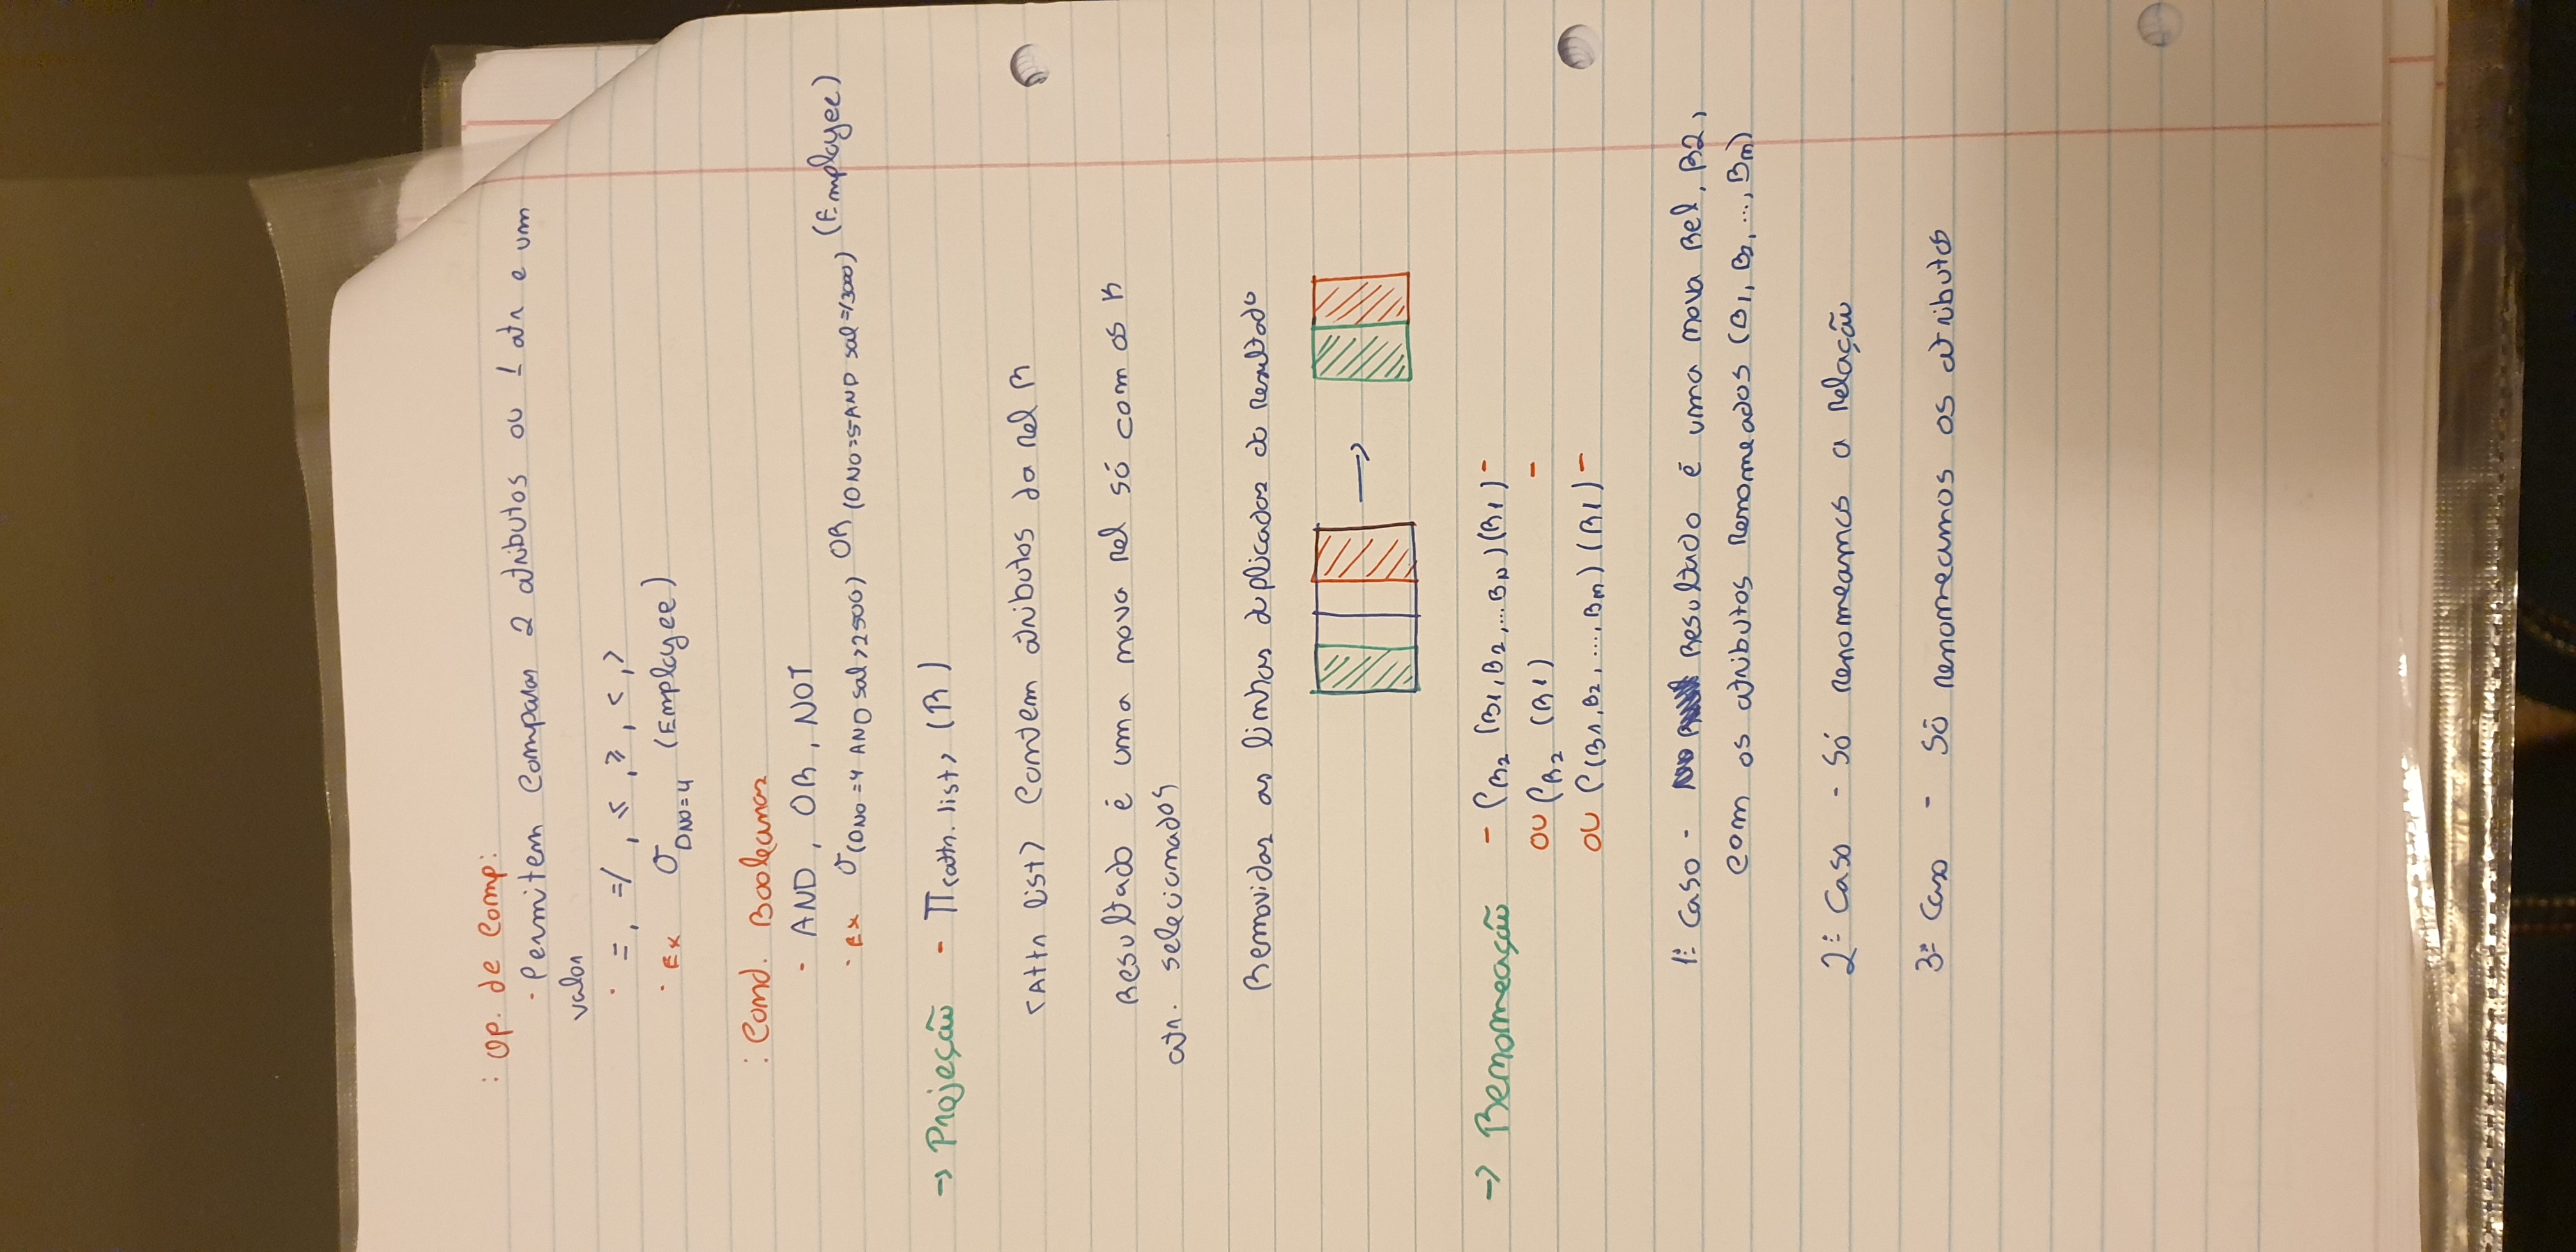 : Op. de Comp:
· Permitem Comparar 2 atributos ou 1 atr e um
valor
· =, =/, ≤, ≥, <, >
· Ex σ DNO=4 (Employee)
: Cond. Booleanas
- AND, OR, NOT
· Ex σ (DNO=4 AND sal>2500) OR (DNO=5 AND sal=/3000) (Employee)
→ Projeção - π<attr. list> (R)
<Attr list> Contem atributos da rel R
Resultado é uma nova rel só com os K
atr. selecionados
Removidas as linhas duplicadas do resultado
→ Renomeação - ρR2 (B1, B2, ... BN) (R1) -
OU ρR2 (R1) -
OU ρ(B1, B2, ..., Bn) (R1) -
1º Caso - Resultado é uma nova Rel, R2,
com os atributos Renomeados (B1, B2, ..., Bn)
2º Caso - Só renomeamos a relação
3º Caso - Só renomeamos os atributos